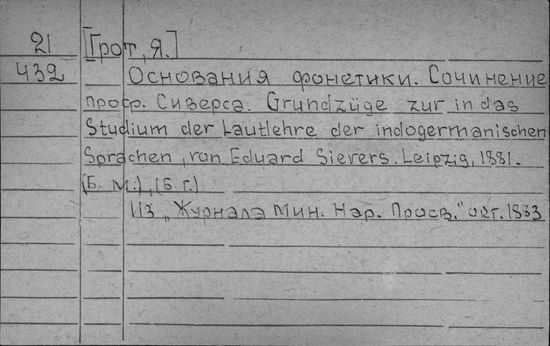 21
[Грот, Я.]
432
Основания фонетики. Сочинение
проф. Сиверса. Grundzüge zur in das
Studium der Lautlehre der indogermanischen
Sprachen, von Eduard Sievers. Leipzig, 1881.
(Б. М.), (Б. г.)
Из „Журнала Мин. Нар. Просв." окт. 1883